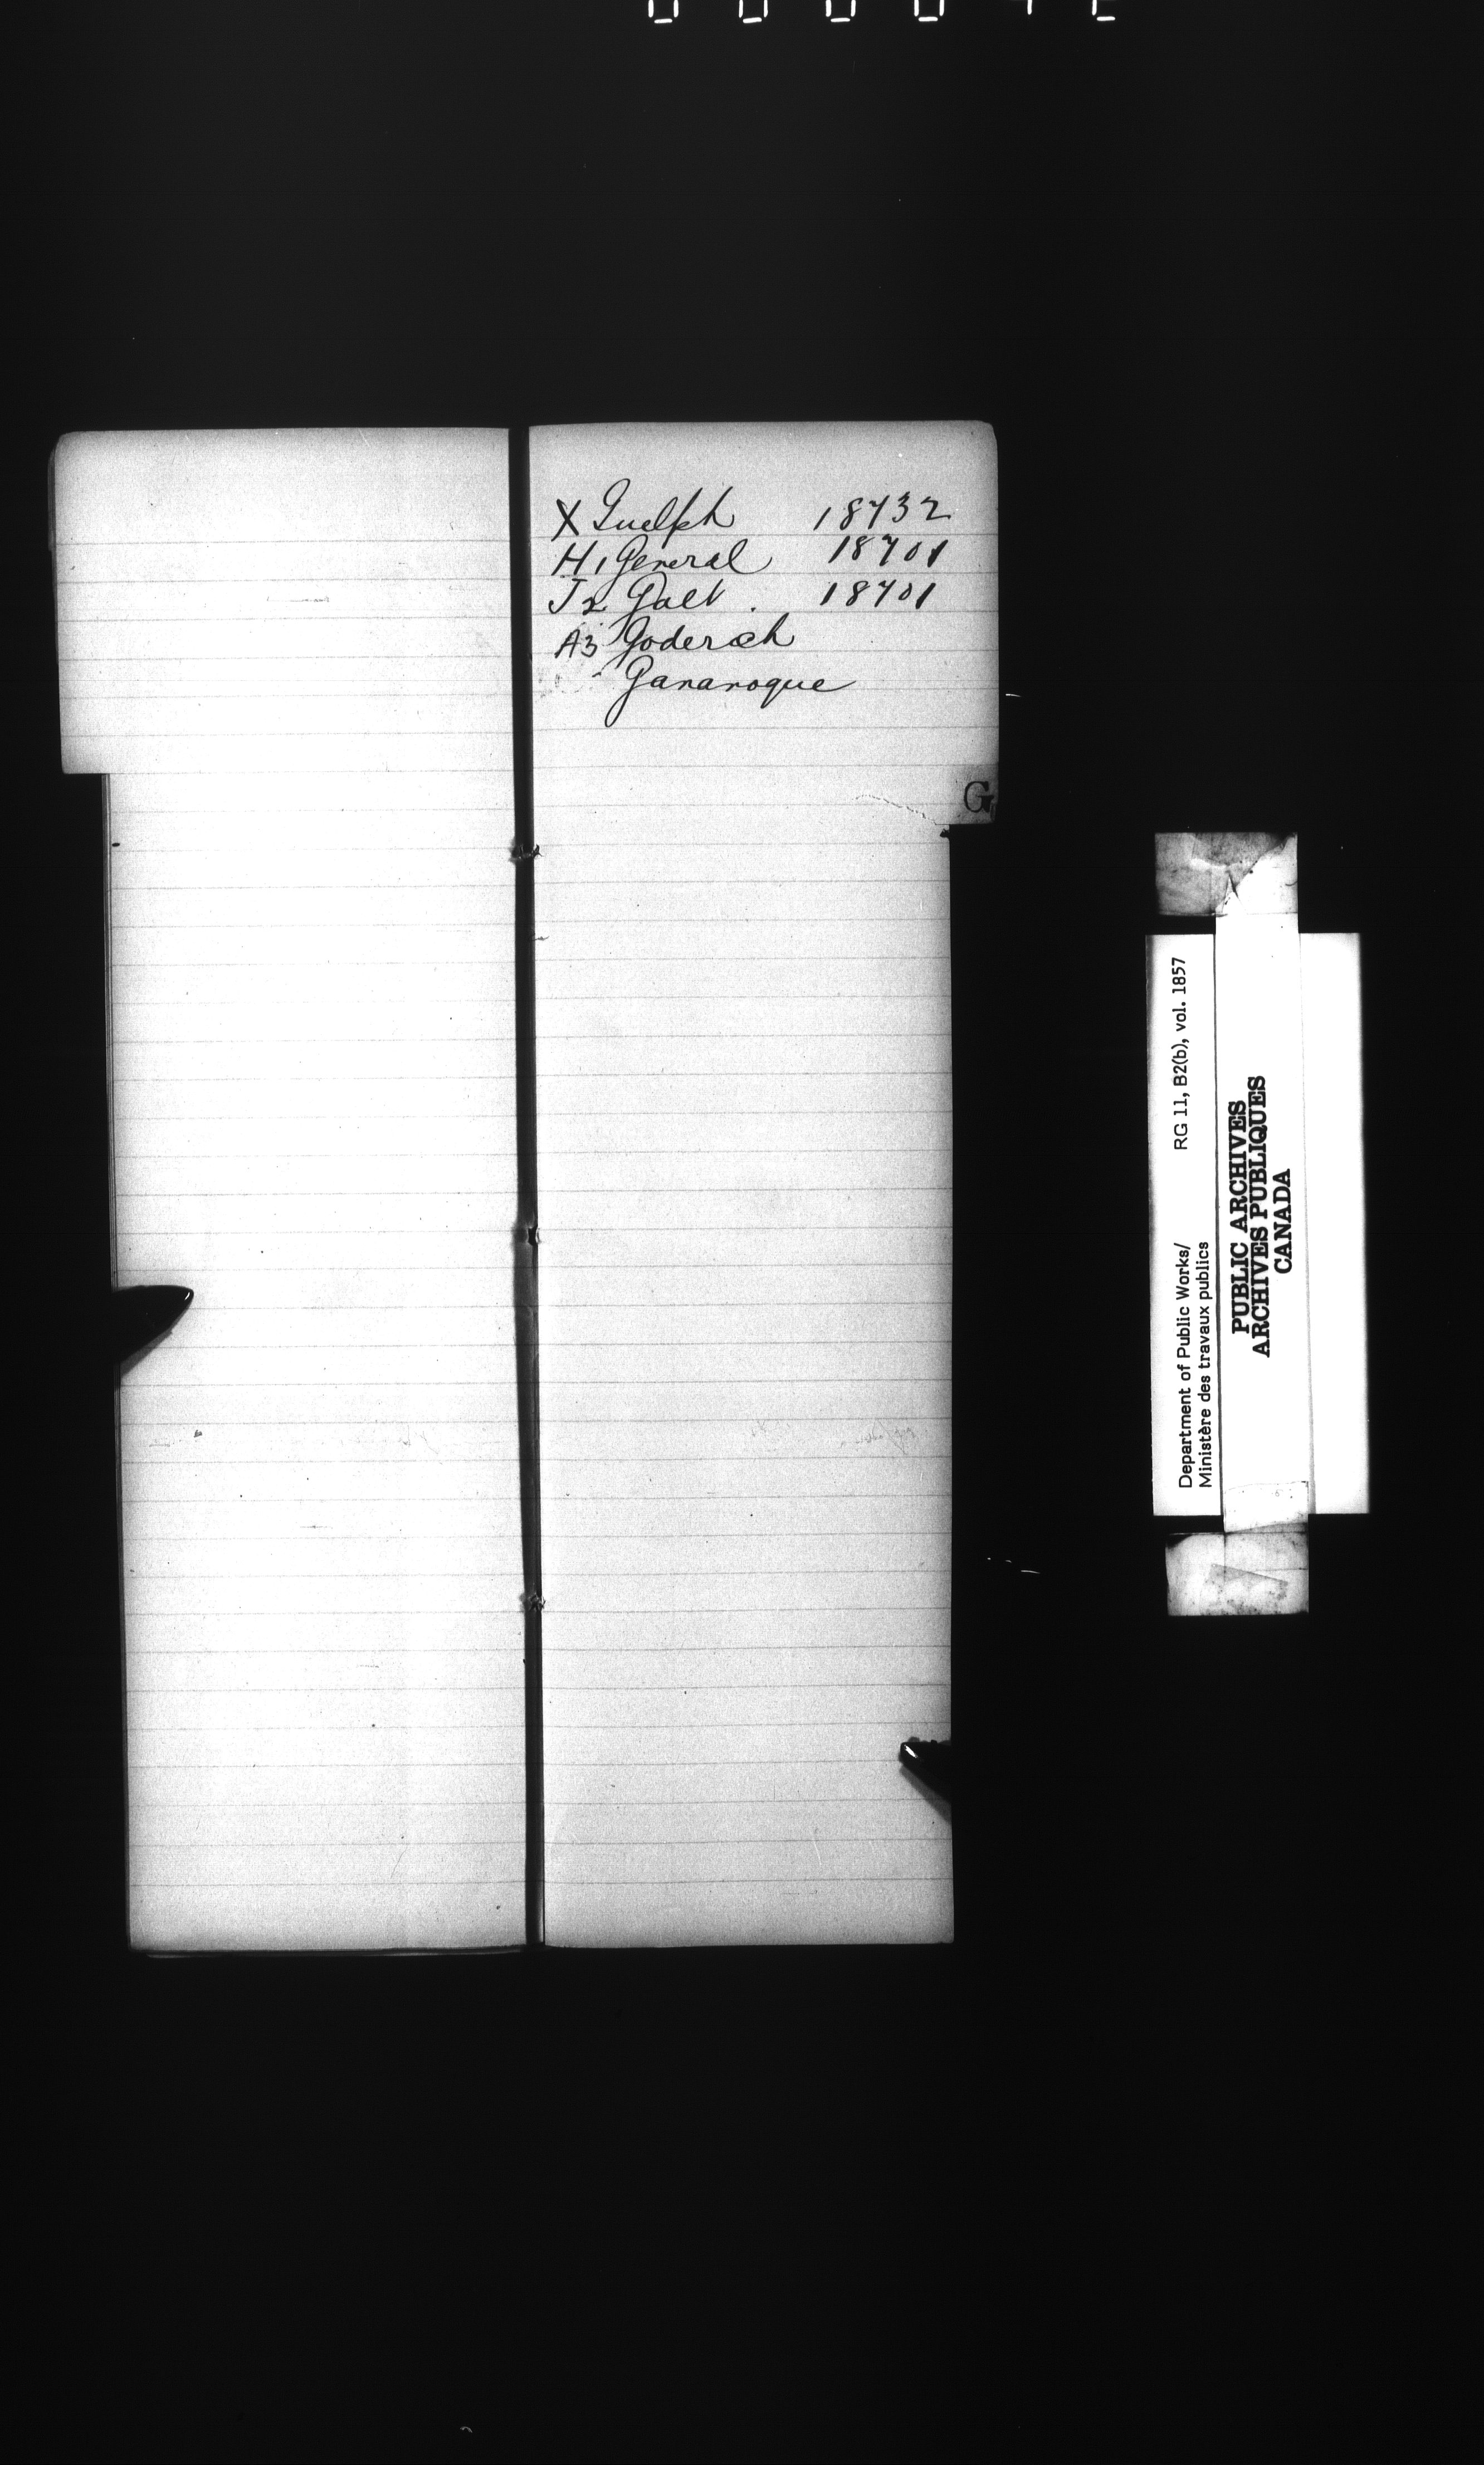 X Guelph 18732
H1 General 18701
J2 Galt . 18701
A3 Goderich
Gananoque
G
Department of Public Works/ RG 11, B2(b), vol. 1857
Ministère des travaux publics
PUBLIC ARCHIVES
ARCHIVES PUBLIQUES
CANADA